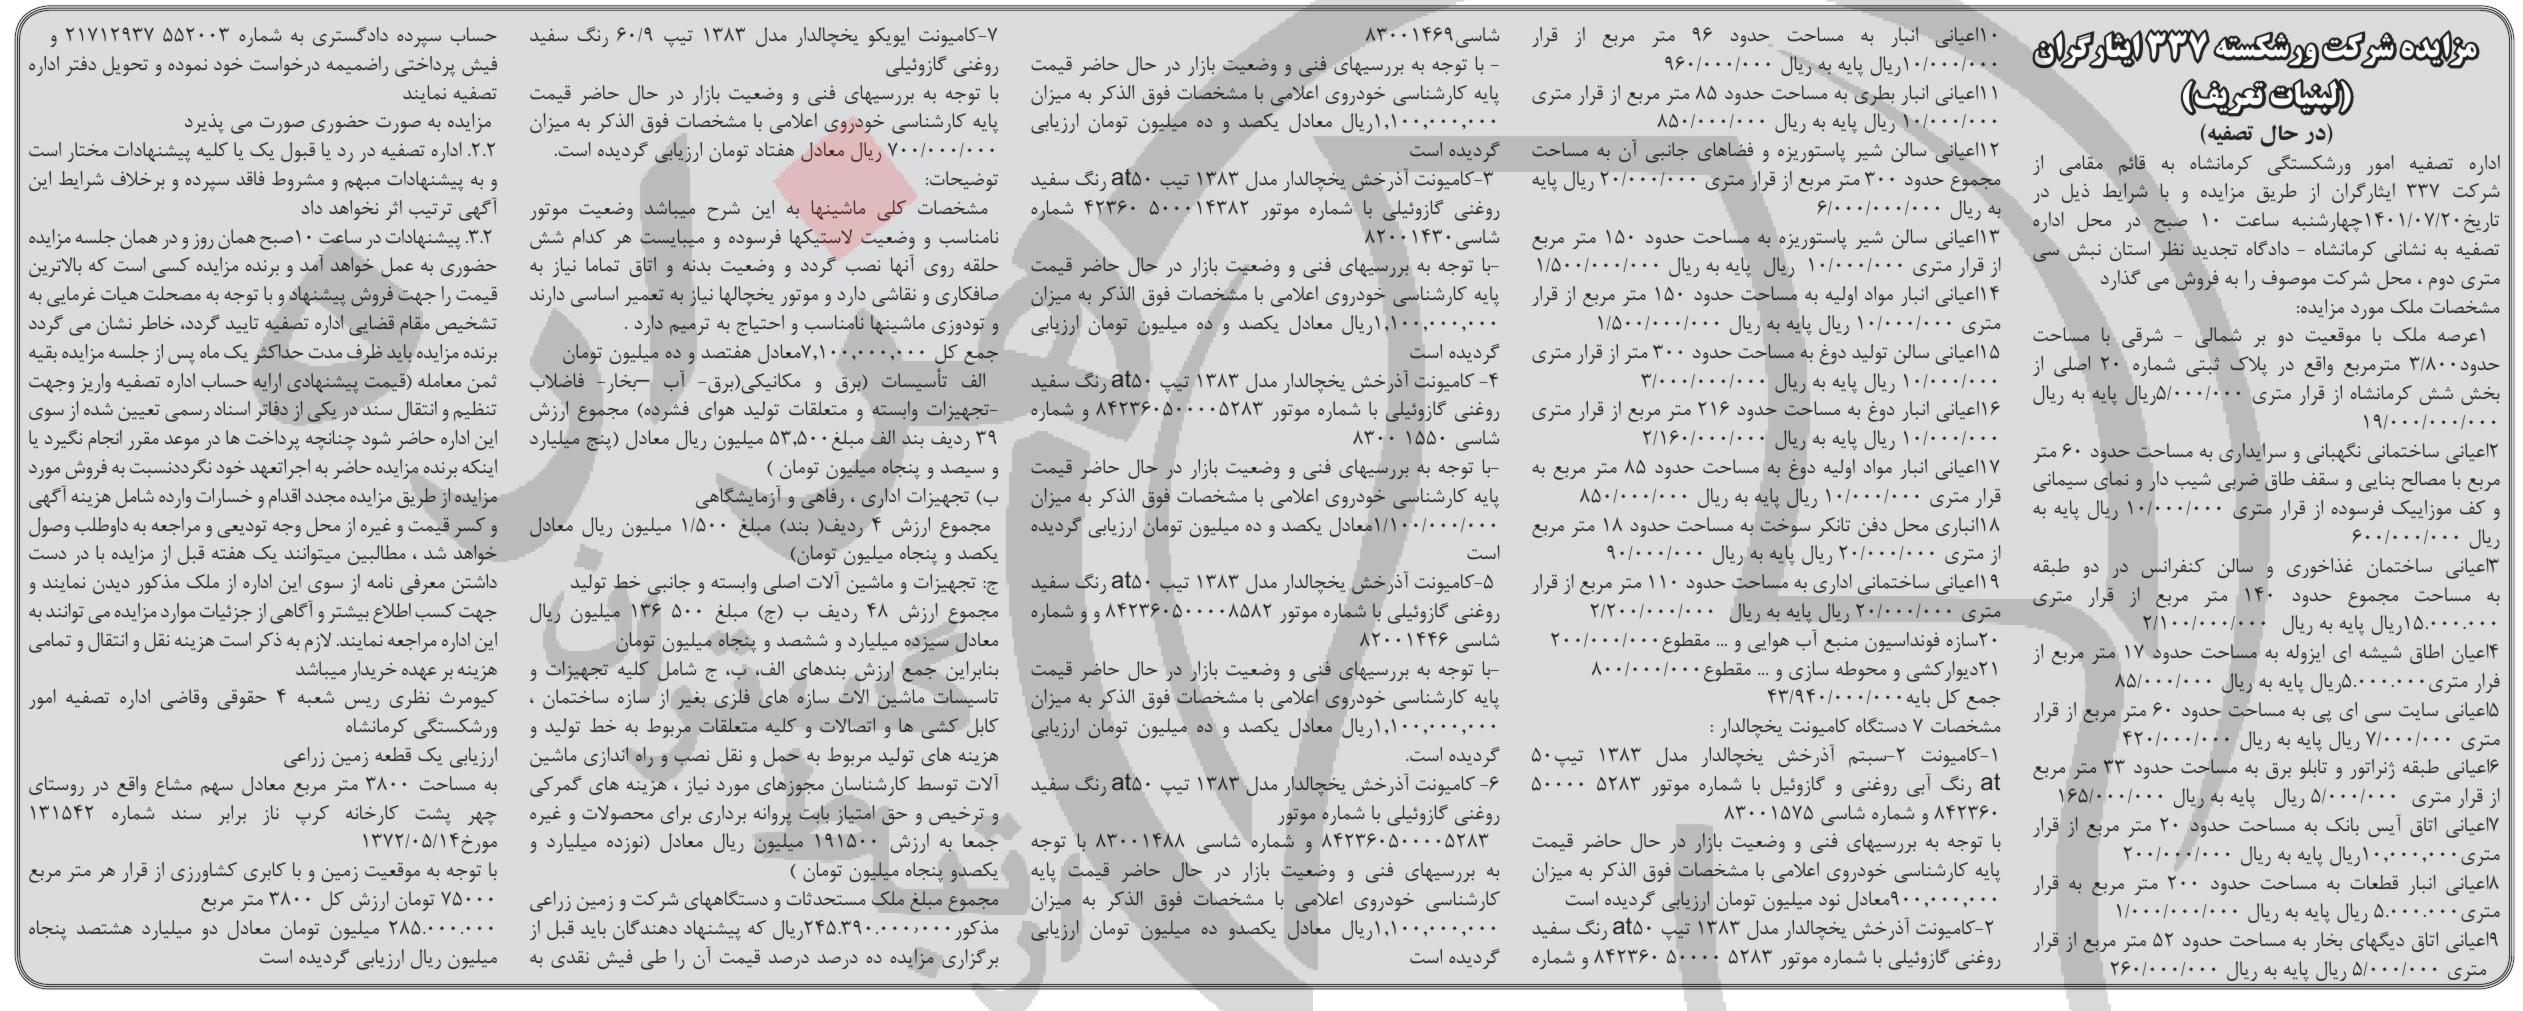 مزایده شرکت ورشکسته ۳۳۷ ایثارگران
(لبنیات تعریف)
(در حال تصفیه)
اداره تصفیه امور ورشکستگی کرمانشاه به قائم مقامی از
شرکت ۳۳۷ ایثارگران از طریق مزایده و با شرایط ذیل در
تاریخ۱۴۰۱/۰۷/۲۰چهارشنبه ساعت ۱۰ صبح در محل اداره
تصفیه به نشانی کرمانشاه - دادگاه تجدید نظر استان نبش سی
متری دوم ، محل شرکت موصوف را به فروش می گذارد
مشخصات ملک مورد مزایده:
۱عرصه ملک با موقعیت دو بر شمالی - شرقی با مساحت
حدود۳/۸۰۰ مترمربع واقع در پلاک ثبتی شماره ۲۰ اصلی از
بخش شش کرمانشاه از قرار متری ۵/۰۰۰/۰۰۰ریال پایه به ریال
۱۹/۰۰۰/۰۰۰/۰۰۰
۲اعیانی ساختمانی نگهبانی و سرایداری به مساحت حدود ۶۰ متر
مربع با مصالح بنایی و سقف طاق ضربی شیب دار و نمای سیمانی
و کف موزاییک فرسوده از قرار متری ۱۰/۰۰۰/۰۰۰ ریال پایه به
ریال ۶۰۰/۰۰۰/۰۰۰
۳اعیانی ساختمان غذاخوری و سالن کنفرانس در دو طبقه
به مساحت مجموع حدود ۱۴۰ متر مربع از قرار متری
۱۵.۰۰۰.۰۰۰ریال پایه به ریال ۲/۱۰۰/۰۰۰/۰۰۰
۴اعیان اطاق شیشه ای ایزوله به مساحت حدود ۱۷ متر مربع از
قرار متری۵.۰۰۰.۰۰۰ریال پایه به ریال ۸۵/۰۰۰/۰۰۰
۵اعیانی سایت سی ای پی به مساحت حدود ۶۰ متر مربع از قرار
متری ۷/۰۰۰/۰۰۰ ریال پایه به ریال ۴۲۰/۰۰۰/۰۰۰
۶اعیانی طبقه ژنراتور و تابلو برق به مساحت حدود ۳۳ متر مربع
از قرار متری ۵/۰۰۰/۰۰۰ ریال پایه به ریال ۱۶۵/۰۰۰/۰۰۰
۷اعیانی اتاق آیس بانک به مساحت حدود ۲۰ متر مربع از قرار
متری۱۰,۰۰۰,۰۰۰ریال پایه به ریال ۲۰۰/۰۰۰/۰۰۰
۸اعیانی انبار قطعات به مساحت حدود ۲۰۰ متر مربع به قرار
متری۵.۰۰۰.۰۰۰ ریال پایه به ریال ۱/۰۰۰/۰۰۰/۰۰۰
۹اعیانی اتاق دیگهای بخار به مساحت حدود ۵۲ متر مربع از قرار
متری ۵/۰۰۰/۰۰۰ ریال پایه به ریال ۲۶۰/۰۰۰/۰۰۰
۱۰اعیانی انبار به مساحت حدود ۹۶ متر مربع از قرار
۱۰/۰۰۰/۰۰۰ریال پایه به ریال ۹۶۰/۰۰۰/۰۰۰
۱۱اعیانی انبار بطری به مساحت حدود ۸۵ متر مربع از قرار متری
۱۰/۰۰۰/۰۰۰ ریال پایه به ریال ۸۵۰/۰۰۰/۰۰۰
۱۲اعیانی سالن شیر پاستوریزه و فضاهای جانبی آن به مساحت
مجموع حدود ۳۰۰ متر مربع از قرار متری ۲۰/۰۰۰/۰۰۰ ریال پایه
به ریال ۶/۰۰۰/۰۰۰/۰۰۰
۱۳اعیانی سالن شیر پاستوریزه به مساحت حدود ۱۵۰ متر مربع
از قرار متری ۱۰/۰۰۰/۰۰۰ ریال پایه به ریال ۱/۵۰۰/۰۰۰/۰۰۰
۱۴اعیانی انبار مواد اولیه به مساحت حدود ۱۵۰ متر مربع از قرار
متری ۱۰/۰۰۰/۰۰۰ ریال پایه به ریال ۱/۵۰۰/۰۰۰/۰۰۰
۱۵اعیانی سالن تولید دوغ به مساحت حدود ۳۰۰ متر از قرار متری
۱۰/۰۰۰/۰۰۰ ریال پایه به ریال ۳/۰۰۰/۰۰۰/۰۰۰
۱۶اعیانی انبار دوغ به مساحت حدود ۲۱۶ متر مربع از قرار متری
۱۰/۰۰۰/۰۰۰ ریال پایه به ریال ۲/۱۶۰/۰۰۰/۰۰۰
۱۷اعیانی انبار مواد اولیه دوغ به مساحت حدود ۸۵ متر مربع به
قرار متری ۱۰/۰۰۰/۰۰۰ ریال پایه به ریال ۸۵۰/۰۰۰/۰۰۰
۱۸انباری محل دفن تانکر سوخت به مساحت حدود ۱۸ متر مربع
از متری ۲۰/۰۰۰/۰۰۰ ریال پایه به ریال ۹۰/۰۰۰/۰۰۰
۱۹اعیانی ساختمانی اداری به مساحت حدود ۱۱۰ متر مربع از قرار
متری ۲۰/۰۰۰/۰۰۰ ریال پایه به ریال ۲/۲۰۰/۰۰۰/۰۰۰
۲۰سازه فونداسیون منبع آب هوایی و ... مقطوع۲۰۰/۰۰۰/۰۰۰
۲۱دیوارکشی و محوطه سازی و ... مقطوع۸۰۰/۰۰۰/۰۰۰
جمع کل پایه۴۳/۹۴۰/۰۰۰/۰۰۰
مشخصات ۷ دستگاه کامیونت یخچالدار :
۱-کامیونت ۲-سبتم آذرخش یخچالدار مدل ۱۳۸۳ تیپ۵۰
at رنگ آبی روغنی و گازوئیل با شماره موتور ۵۲۸۳ ۵۰۰۰۰
۸۴۲۳۶۰ و شماره شاسی ۸۳۰۰۱۵۷۵
با توجه به بررسیهای فنی و وضعیت بازار در حال حاضر قیمت
پایه کارشناسی خودروی اعلامی با مشخصات فوق الذکر به میزان
۹۰۰,۰۰۰,۰۰۰معادل نود میلیون تومان ارزیابی گردیده است
۲-کامیونت آذرخش یخچالدار مدل ۱۳۸۳ تیپ at۵۰ رنگ سفید
روغنی گازوئیلی با شماره موتور ۵۲۸۳ ۵۰۰۰۰ ۸۴۲۳۶۰ و شماره
شاسی۸۳۰۰۱۴۶۹
- با توجه به بررسیهای فنی و وضعیت بازار در حال حاضر قیمت
پایه کارشناسی خودروی اعلامی با مشخصات فوق الذکر به میزان
۱,۱۰۰,۰۰۰,۰۰۰ریال معادل یکصد و ده میلیون تومان ارزیابی
گردیده است
۳-کامیونت آذرخش یخچالدار مدل ۱۳۸۳ تیپ at۵۰ رنگ سفید
روغنی گازوئیلی با شماره موتور ۵۰۰۰۱۴۳۸۲ ۴۲۳۶۰ شماره
شاسی۸۲۰۰۱۴۳۰
-با توجه به بررسیهای فنی و وضعیت بازار در حال حاضر قیمت
پایه کارشناسی خودروی اعلامی با مشخصات فوق الذکر به میزان
۱,۱۰۰,۰۰۰,۰۰۰ریال معادل یکصد و ده میلیون تومان ارزیابی
گردیده است
۴- کامیونت آذرخش یخچالدار مدل ۱۳۸۳ تیپ at۵۰ رنگ سفید
روغنی گازوئیلی با شماره موتور ۸۴۲۳۶۰۵۰۰۰۰۵۲۸۳ و شماره
شاسی ۱۵۵۰ ۸۳۰۰
-با توجه به بررسیهای فنی و وضعیت بازار در حال حاضر قیمت
پایه کارشناسی خودروی اعلامی با مشخصات فوق الذکر به میزان
۱/۱۰۰/۰۰۰/۰۰۰معادل یکصد و ده میلیون تومان ارزیابی گردیده
است
۵-کامیونت آذرخش یخچالدار مدل ۱۳۸۳ تیپ at۵۰ رنگ سفید
روغنی گازوئیلی با شماره موتور ۸۴۲۳۶۰۵۰۰۰۰۸۵۸۲ و و شماره
شاسی ۸۲۰۰۱۴۴۶
-با توجه به بررسیهای فنی و وضعیت بازار در حال حاضر قیمت
پایه کارشناسی خودروی اعلامی با مشخصات فوق الذکر به میزان
۱,۱۰۰,۰۰۰,۰۰۰ریال معادل یکصد و ده میلیون تومان ارزیابی
گردیده است.
۶- کامیونت آذرخش یخچالدار مدل ۱۳۸۳ تیپ at۵۰ رنگ سفید
روغنی گازوئیلی با شماره موتور
۸۴۲۳۶۰۵۰۰۰۰۵۲۸۳ و شماره شاسی ۸۳۰۰۱۴۸۸ با توجه
به بررسیهای فنی و وضعیت بازار در حال حاضر قیمت پایه
کارشناسی خودروی اعلامی با مشخصات فوق الذکر به میزان
۱,۱۰۰,۰۰۰,۰۰۰ریال معادل یکصدو ده میلیون تومان ارزیابی
گردیده است
۷-کامیونت ایویکو یخچالدار مدل ۱۳۸۳ تیپ ۶۰/۹ رنگ سفید
روغنی گازوئیلی
با توجه به بررسیهای فنی و وضعیت بازار در حال حاضر قیمت
پایه کارشناسی خودروی اعلامی با مشخصات فوق الذکر به میزان
۷۰۰/۰۰۰/۰۰۰ ریال معادل هفتاد تومان ارزیابی گردیده است.
توضیحات:
مشخصات کلی ماشینها به این شرح میباشد وضعیت موتور
نامناسب و وضعیت لاستیکها فرسوده و میبایست هر کدام شش
حلقه روی آنها نصب گردد و وضعیت بدنه و اتاق تماما نیاز به
صافکاری و نقاشی دارد و موتور یخچالها نیاز به تعمیر اساسی دارند
و تودوزی ماشینها نامناسب و احتیاج به ترمیم دارد .
جمع کل ۷,۱۰۰,۰۰۰,۰۰۰معادل هفتصد و ده میلیون تومان
الف تأسیسات (برق و مکانیکی(برق- آب –بخار- فاضلاب
-تجهیزات وابسته و متعلقات تولید هوای فشرده) مجموع ارزش
۳۹ ردیف بند الف مبلغ۵۳,۵۰۰ میلیون ریال معادل (پنج میلیارد
و سیصد و پنجاه میلیون تومان )
ب) تجهیزات اداری ، رفاهی و آزمایشگاهی
مجموع ارزش ۴ ردیف( بند) مبلغ ۱/۵۰۰ میلیون ریال معادل
یکصد و پنجاه میلیون تومان)
ج: تجهیزات و ماشین آلات اصلی وابسته و جانبی خط تولید
مجموع ارزش ۴۸ ردیف ب (ج) مبلغ ۵۰۰ ۱۳۶ میلیون ریال
معادل سیزده میلیارد و ششصد و پنجاه میلیون تومان
بنابراین جمع ارزش بندهای الف، ب، ج شامل کلیه تجهیزات و
تاسیسات ماشین الات سازه های فلزی بغیر از سازه ساختمان ،
کابل کشی ها و اتصالات و کلیه متعلقات مربوط به خط تولید و
هزینه های تولید مربوط به حمل و نقل نصب و راه اندازی ماشین
آلات توسط کارشناسان مجوزهای مورد نیاز ، هزینه های گمرکی
و ترخیص و حق امتیاز بابت پروانه برداری برای محصولات و غیره
جمعا به ارزش ۱۹۱۵۰۰ میلیون ریال معادل (نوزده میلیارد و
یکصدو پنجاه میلیون تومان )
مجموع مبلغ ملک مستحدثات و دستگاههای شرکت و زمین زراعی
مذکور۲۴۵.۳۹۰.۰۰۰،۰۰۰ریال که پیشنهاد دهندگان باید قبل از
برگزاری مزایده ده درصد درصد قیمت آن را طی فیش نقدی به
حساب سپرده دادگستری به شماره ۵۵۲۰۰۳ ۲۱۷۱۲۹۳۷ و
فیش پرداختی راضمیمه درخواست خود نموده و تحویل دفتر اداره
تصفیه نمایند
مزایده به صورت حضوری صورت می پذیرد
۲.۲. اداره تصفیه در رد یا قبول یک یا کلیه پیشنهادات مختار است
و به پیشنهادات مبهم و مشروط فاقد سپرده و برخلاف شرایط این
آگهی ترتیب اثر نخواهد داد
۳.۲. پیشنهادات در ساعت ۱۰صبح همان روز و در همان جلسه مزایده
حضوری به عمل خواهد امد و برنده مزایده کسی است که بالاترین
قیمت را جهت فروش پیشنهاد و با توجه به مصحلت هیات غرمایی به
تشخیص مقام قضایی اداره تصفیه تایید گردد، خاطر نشان می گردد
برنده مزایده باید ظرف مدت حداکثر یک ماه پس از جلسه مزایده بقیه
ثمن معامله (قیمت پیشنهادی ارایه حساب اداره تصفیه واریز وجهت
تنظیم و انتقال سند در یکی از دفاتر اسناد رسمی تعیین شده از سوی
این اداره حاضر شود چنانچه پرداخت ها در موعد مقرر انجام نگیرد یا
اینکه برنده مزایده حاضر به اجراتعهد خود نگرددنسبت به فروش مورد
مزایده از طریق مزایده مجدد اقدام و خسارات وارده شامل هزینه آگهی
و کسر قیمت و غیره از محل وجه تودیعی و مراجعه به داوطلب وصول
خواهد شد ، مطالبین میتوانند یک هفته قبل از مزایده با در دست
داشتن معرفی نامه از سوی این اداره از ملک مذکور دیدن نمایند و
جهت کسب اطلاع بیشتر و آگاهی از جزئیات موارد مزایده می توانند به
این اداره مراجعه نمایند. لازم به ذکر است هزینه نقل و انتقال و تمامی
هزینه بر عهده خریدار میباشد
کیومرث نظری ریس شعبه ۴ حقوقی وقاضی اداره تصفیه امور
ورشکستگی کرمانشاه
ارزیابی یک قطعه زمین زراعی
به مساحت ۳۸۰۰ متر مربع معادل سهم مشاع واقع در روستای
چهر پشت کارخانه کرپ ناز برابر سند شماره ۱۳۱۵۴۲
مورخ۱۳۷۲/۰۵/۱۴
با توجه به موقعیت زمین و با کابری کشاورزی از قرار هر متر مربع
۷۵۰۰۰ تومان ارزش کل ۳۸۰۰ متر مربع
۲۸۵.۰۰۰.۰۰۰ میلیون تومان معادل دو میلیارد هشتصد پنجاه
میلیون ریال ارزیابی گردیده است